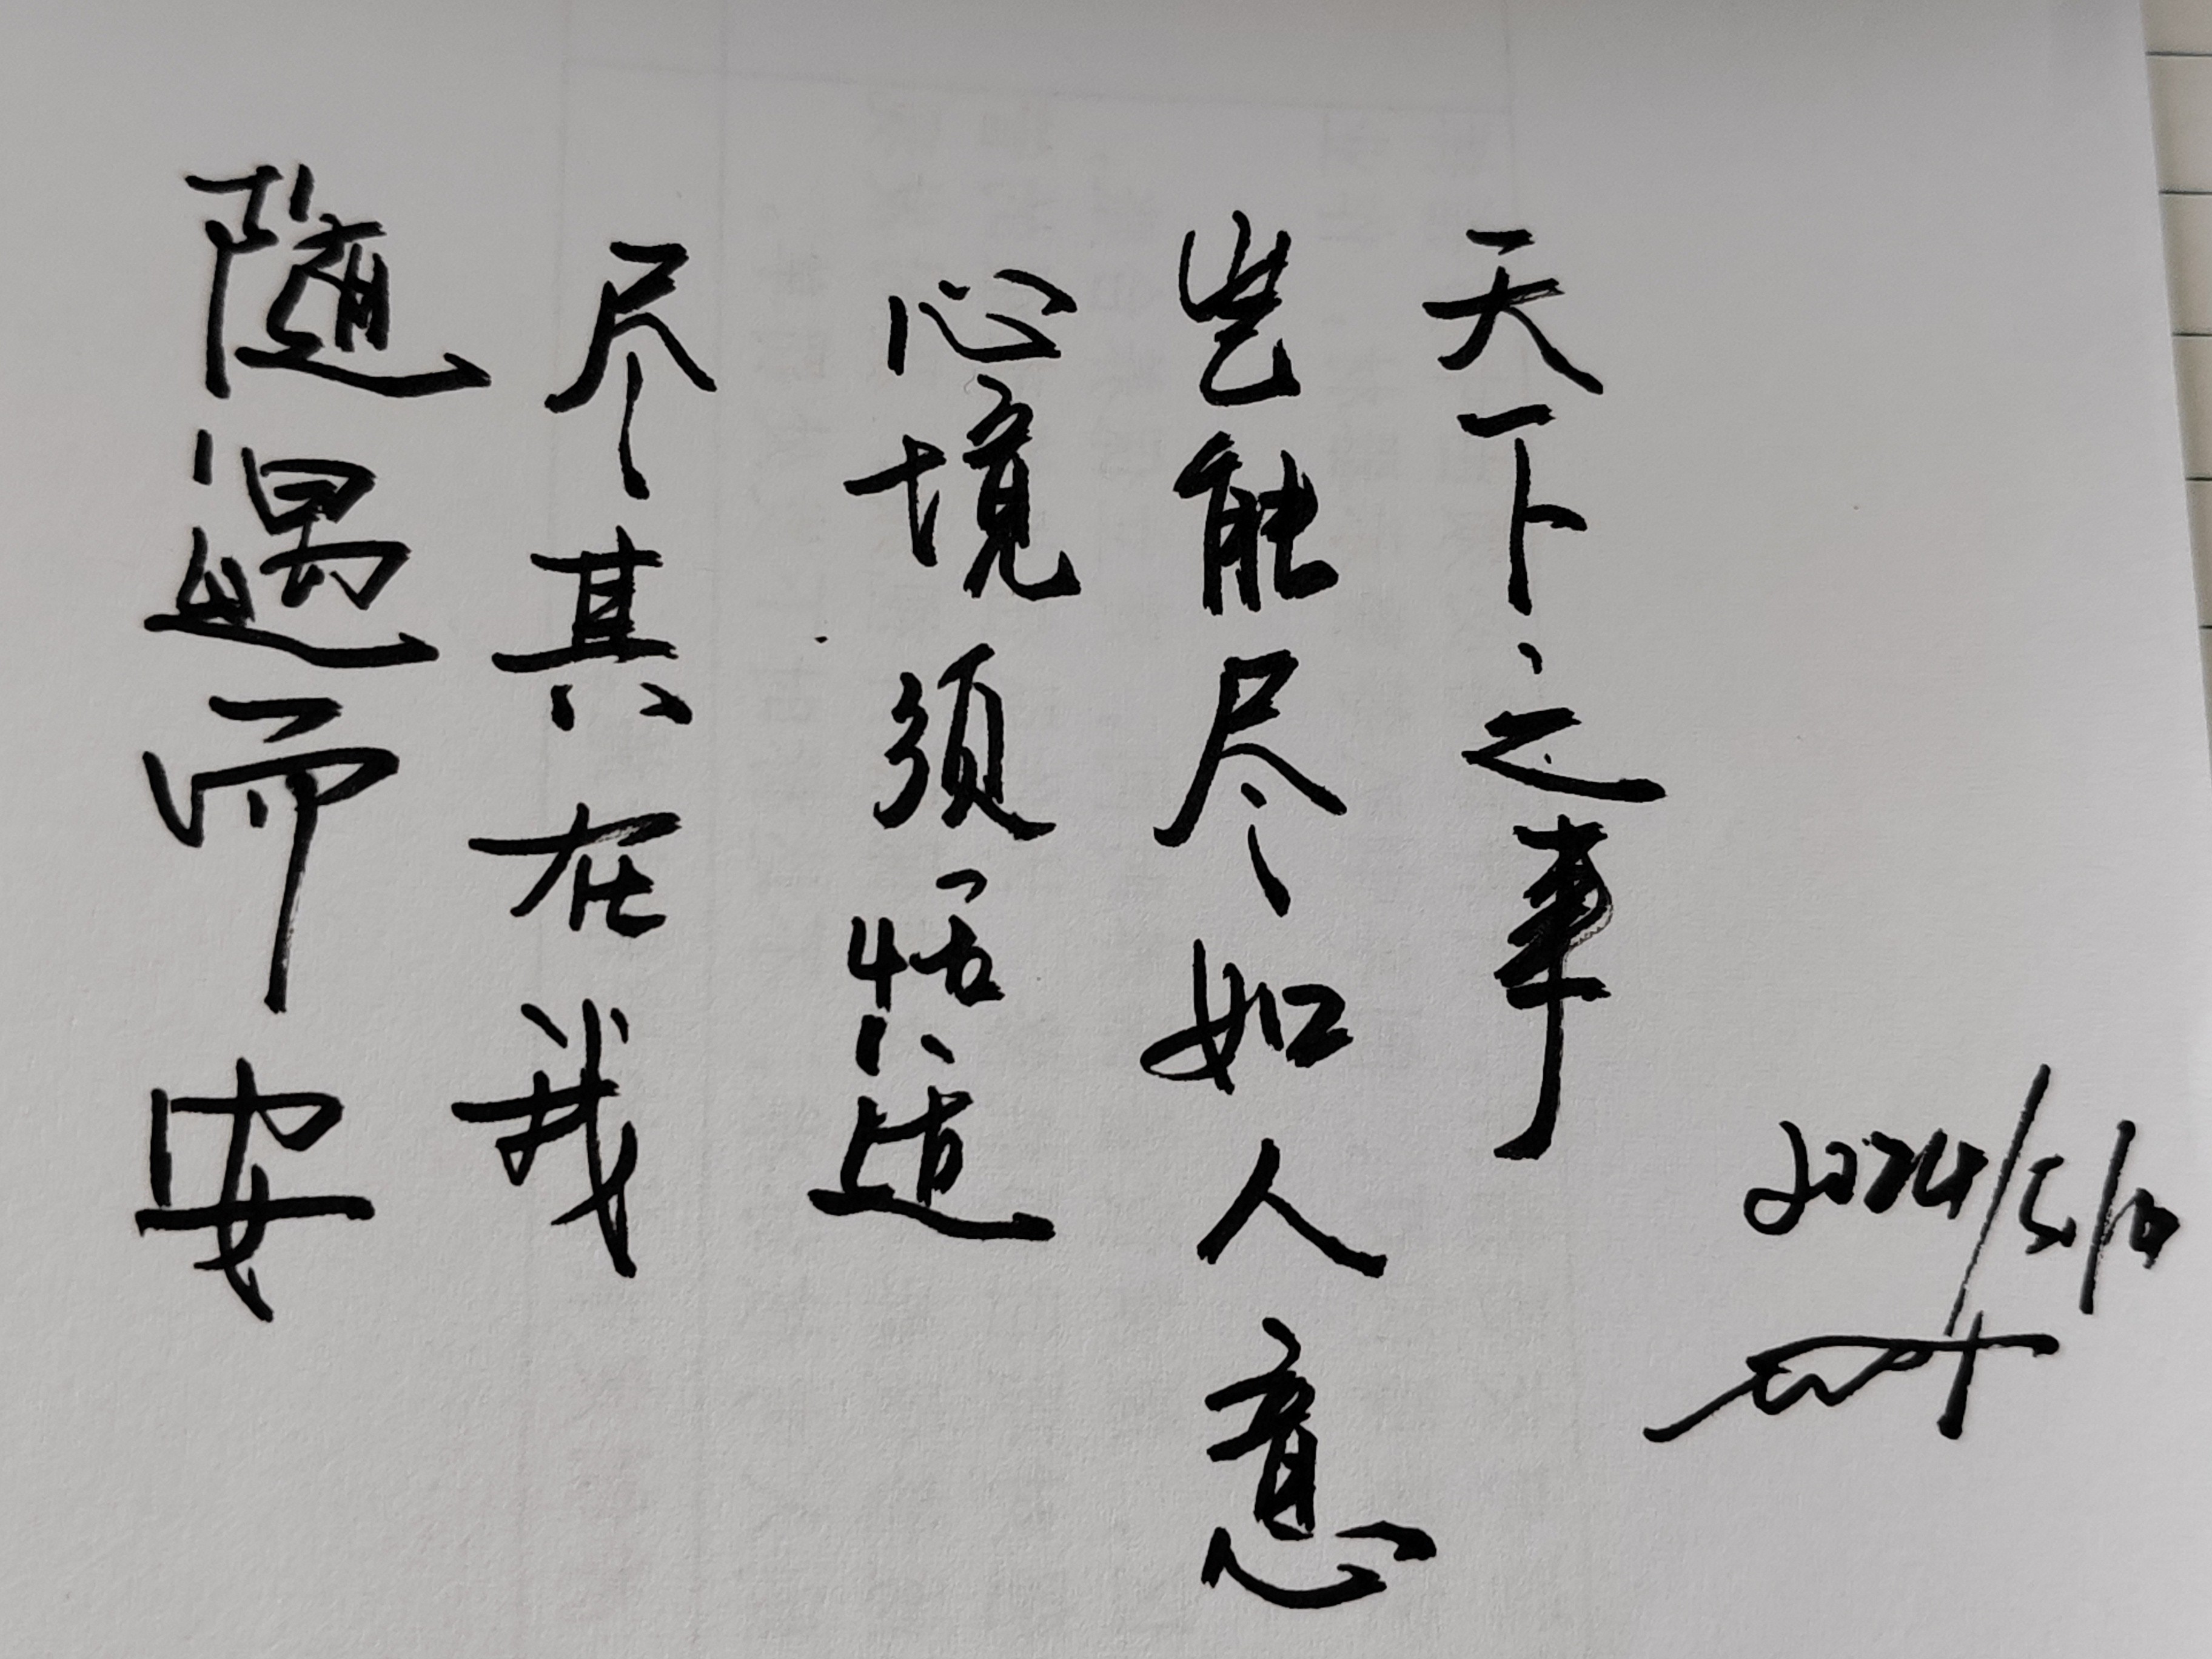 天下之事
岂能尽如人意
心境须恬适
尽其在我
随遇而安
2024/5/10